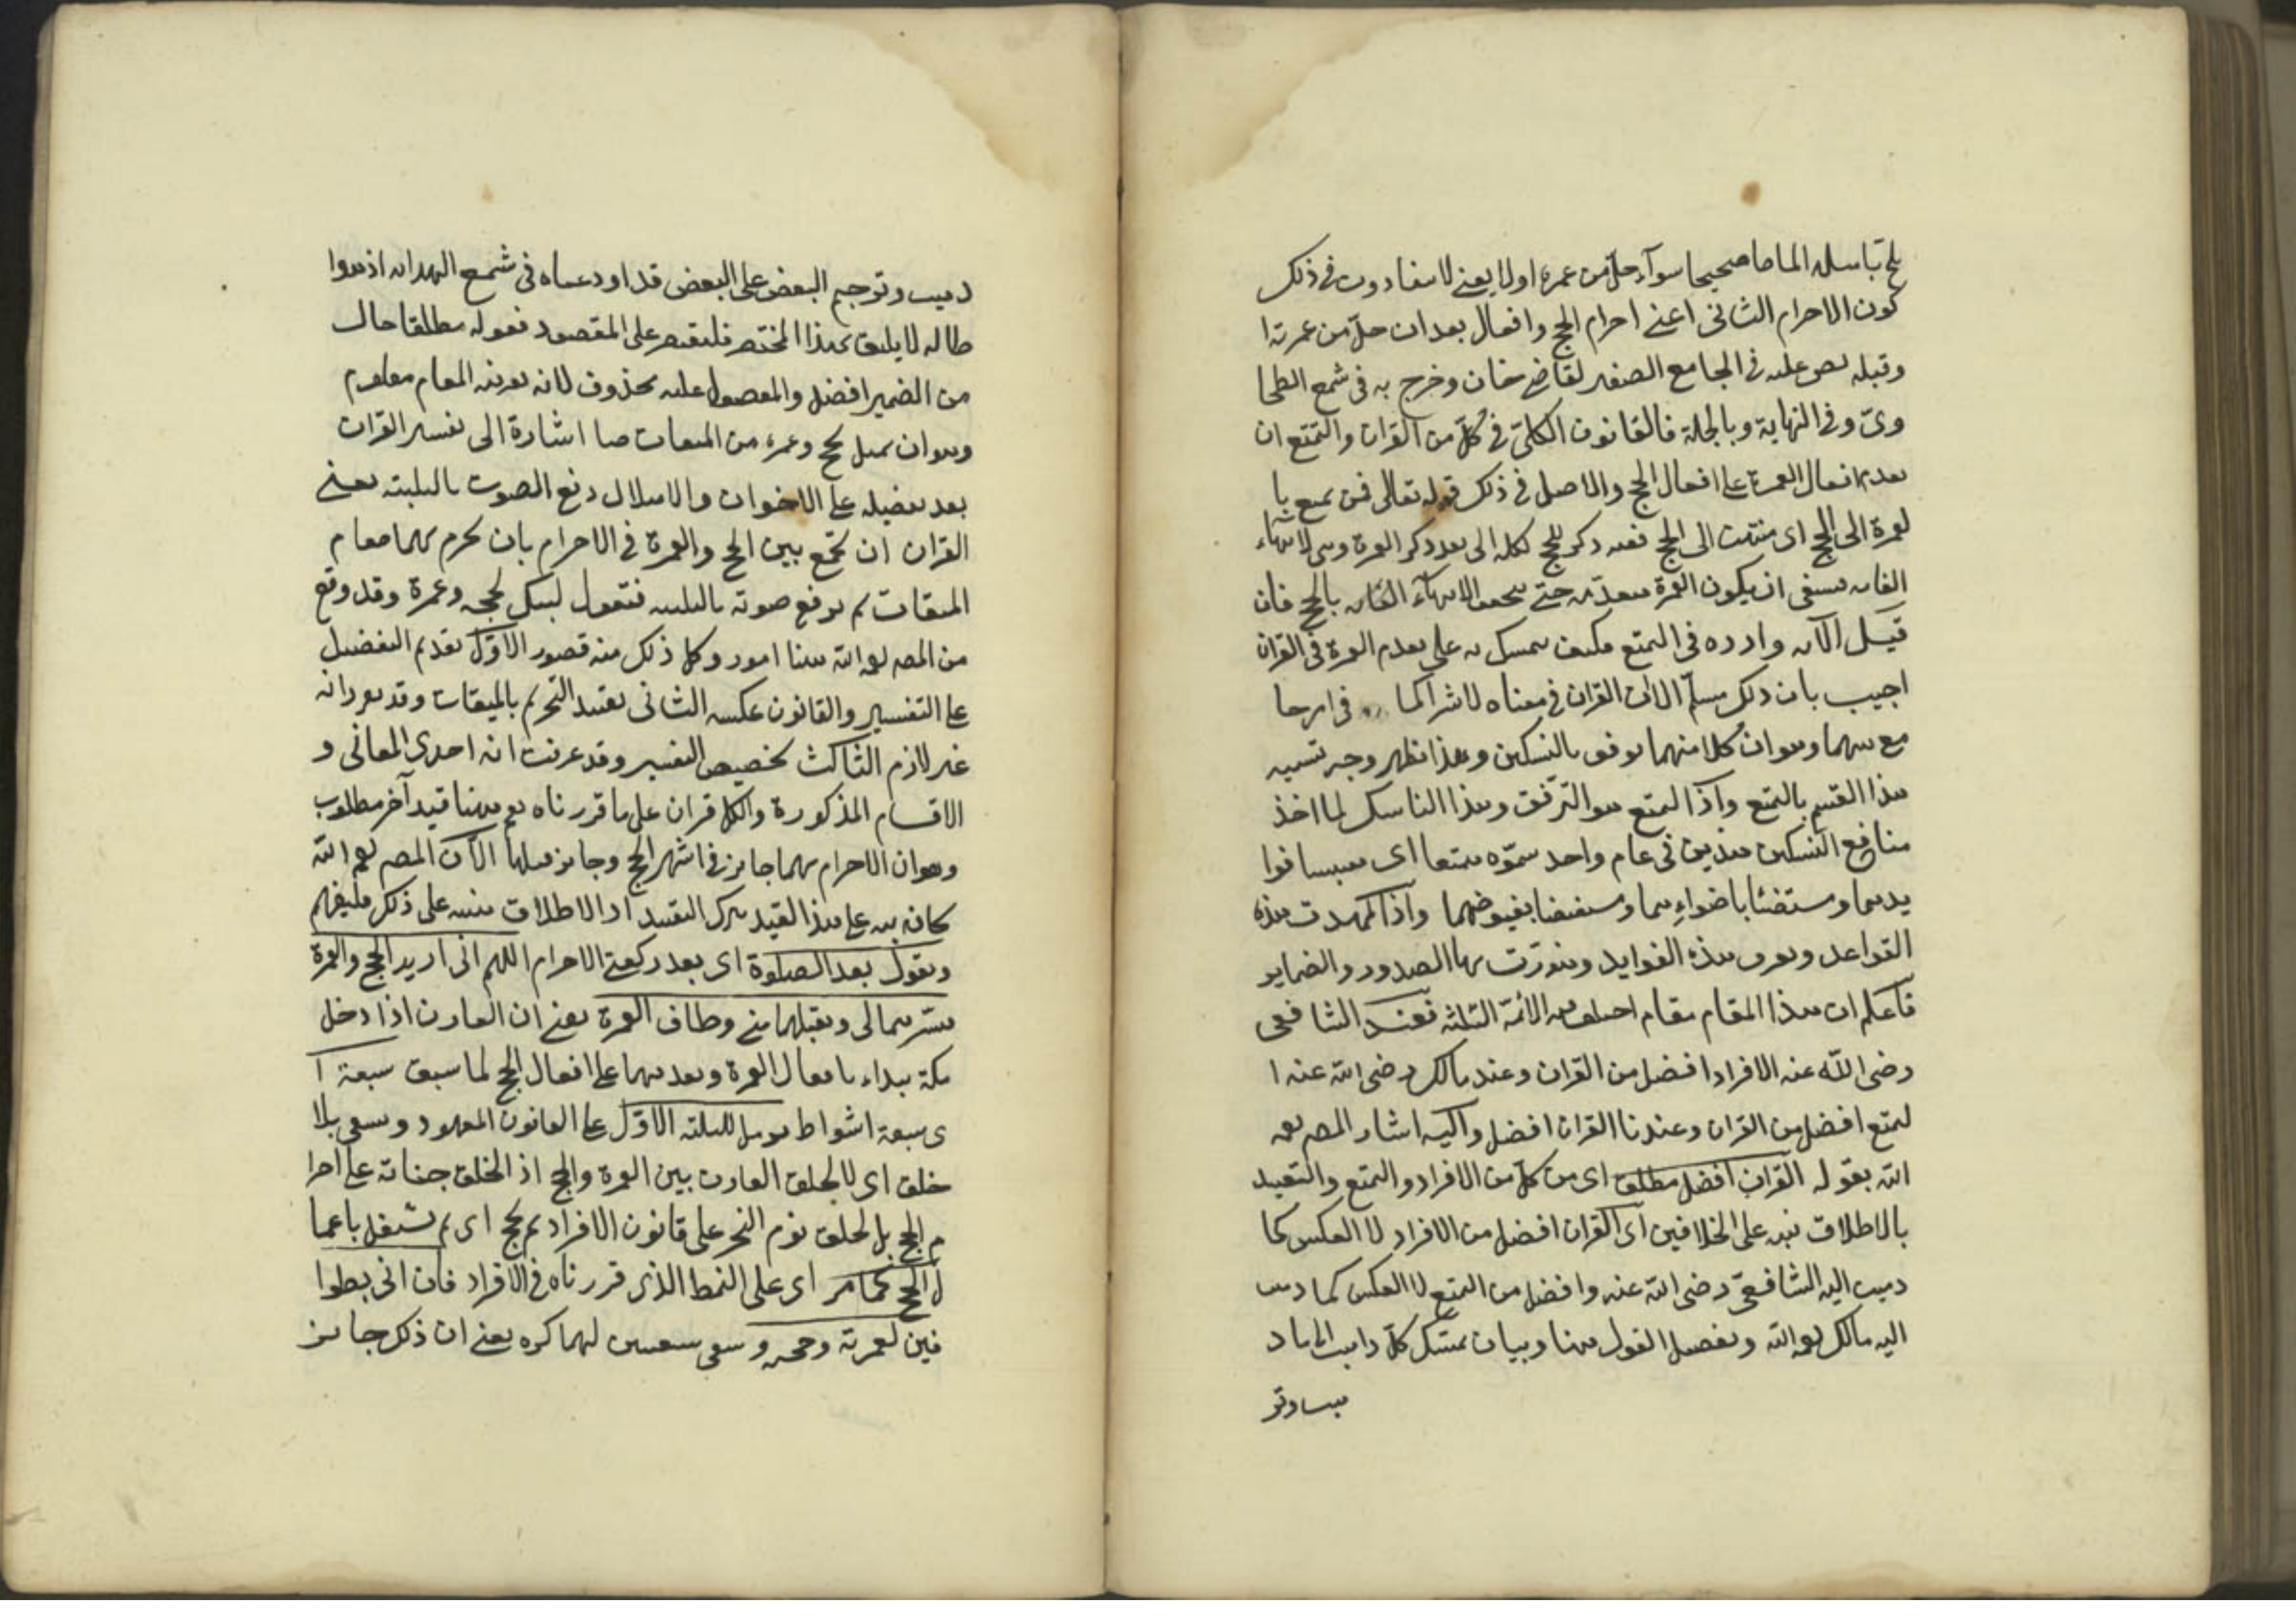 باهله الماما صحيحا سوآء حلّ من عمرة اولا يعنے لا يتفاوت فى ذلك
كون الاحرام الثانى اعنے احرام الحج وافعال بعد ان حلّ من عمرته ا
وقبله نص عليه فى الجامع الصغير لقاضے خان وخرج به فى شرح الطحا
وىّ وفى النهاية وبالجملة فالقانون الكلىّ فى كلّ من القران والتمتع ان
يقدم افعال العمرة على افعال الحج والاصل فى ذلك قوله تعالى فمن تمتع با
لعمرة الى الحج اى منتهيا الى الحج فقد ذكر الحج بكلمة الى بعد ذكر العمرة وهى لانتهاء
الغاية فينبغى ان يكون العمرة مقدّمة حتے يتحقق الانتهآء بالحج فان
قيل الآية واردة فى التمتع فكيف يتمسك به على تقديم العمرة فى القران
اجيب بان ذلك مسلّم الا ان القران فى معناه لاشتراكهما فى امر جا
مع بينهما وهو ان كلا منهما توفق بالنسكين وبهذا ظهر وجه تسميه
هذا القسم بالتمتع واذ التمتع هو الترفق وهذا الناسك لما اخذ
منافع النسكين هذين فى عام واحد سموّه متمتعا اى مقتبسا انوا
ر يديهما ومستضئا باضواءهما ومستفيضا بفيوضهما واذا تمهدت هذه
القواعد وتعرف هذه الفوايد وتنورّت بها الصدور والضماير
فاعلم ان هذا المقام مقام اختلف فيه الأئمة الثلثة فعند الشافعى
رضى اللّه عنه الافراد افضل من القران وعند مالك رضى اللّه عنه ا
لتمتع افضل من القران وعندنا القران افضل واليه اشار المصـ رحمه
اللّه بقوله القران افضل مطلقا اى من كلّ من الافراد والتمتع والتقييد
بالاطلاق نبه على الخلافين اى القران افضل من الافراد لا العكس كما
ذهب اليه الشافعىّ رضى اللّه عنه وافضل من التمتع لا العكس كما ذهب
اليه مالك رحمه اللّه وتفصيل القول هنا وبيان تمسّك كلّ
ذهب وترجيح البعض على البعض قد اودعناه فى شرح الهدايه اذ هوا
طاله لا يليق بهذا المختصر فليقتصر على المقصود فقوله مطلقا حال
من الضمير افضل والمفصول عليه محذوف لانه بقرينة المقام معلوم
وهو ان يهل بحج وعمرة من الميقات معا اشارة الى تفسير القران
بعد تفضيله على الاخوان والاهلال رفع الصوت بالتلبية يعنے
القران ان يجمع بين الحج والعمرة فى الاحرام بان يحرم بهما معا م
الميقات ثم يرفع صوته بالتلبيه فيقول لبيك بحجه وعمرة وقد وقع
من المصـ رحمه اللّه هنا امور وكل ذلك منه قصور الاوّل تقديم التفضيل
على التفسير والقانون عكسه الثانى تقييد التحريم بالميقات وقد تقرر انه
غير لازم الثالث تخصيص التفسير وقد عرفت انه احدى المعانى و
الاقسام المذكورة والكل قران على ما قررناه ثم ههنا قيد آخر مطلوب
وهو ان الاحرام بهما جائز فى اشهر الحج وجايز قبلها الا ان المصـ رحمه اللّه
كانه نبه على هذا القيد بترك التقييد اذ الاطلاق تنبيه على ذلك فليفهم
ويقول بعد الصلوة اى بعد ركعتے الاحرام اللهم انى اريد الحج والعمرة
فيسّرهما لى وتقبلهما منے وطاف العمرة يعنے ان القارن اذا دخل
مكة يبداء بافعال العمرة ويقدمهما على افعال الحج لما سبق سبعة ا
ى سبعة اشواط يرمل للثلثة الاوّل على القانون المعهود ويسعى بلا
حلق اى لا يحلق القارن بين العمرة والحج اذ الحلق جناية على احرا
م الحج بل يحلق يوم النحر على قانون الافراد ثم يحج اى ثم يشتغل باعما
ل الحج كما مر اى على النمط الذى قررناه فى الافراد فان اتى بطوا
فين لعمرته وحجه وسعى سعيين لهما كره يعنے ان ذلك جايز